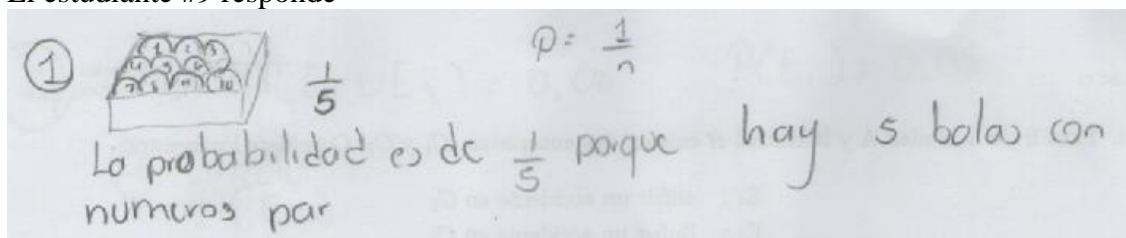 El estudiante #9 responde
1
1 2 3
4 5 6
7 8 9 10
1/5
P = 1/n
La probabilidad es de 1/5 porque hay 5 bolas con
numeros par